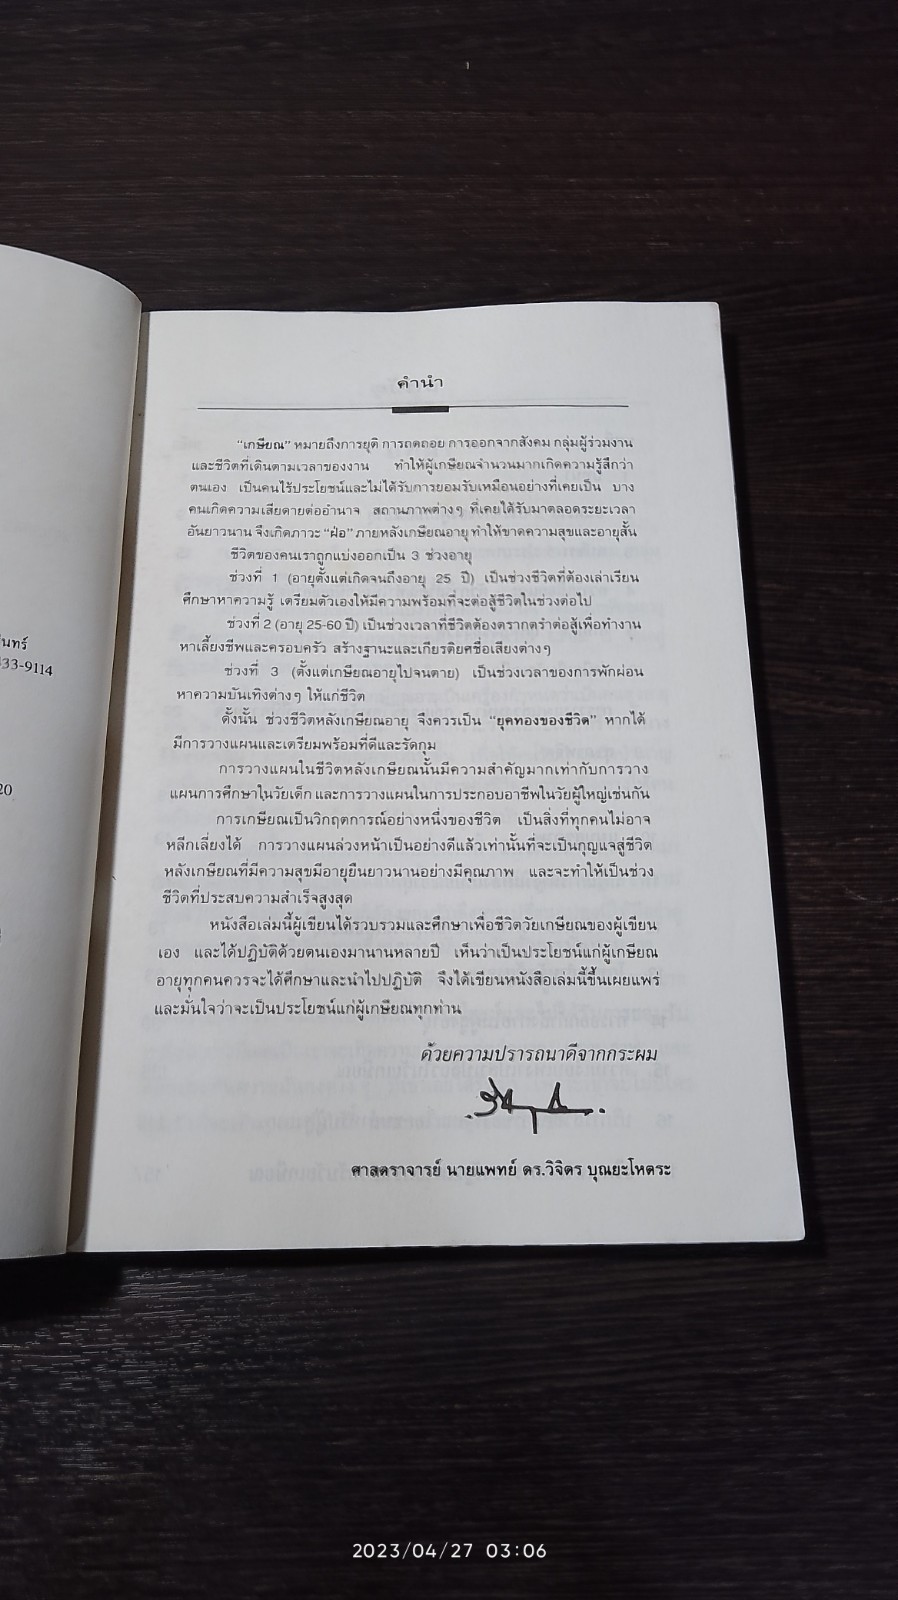 ินทร์
433-9114
20
คำนำ
"เกษียณ" หมายถึงการยุติ การถดถอย การออกจากสังคม กลุ่มผู้ร่วมงาน
และชีวิตที่เดินตามเวลาของงาน ทำให้ผู้เกษียณจำนวนมากเกิดความรู้สึกว่า
ตนเอง เป็นคนไร้ประโยชน์และไม่ได้รับการยอมรับเหมือนอย่างที่เคยเป็น บาง
คนเกิดความเสียดายต่ออำนาจ สถานภาพต่างๆ ที่เคยได้รับมาตลอดระยะเวลา
อันยาวนาน จึงเกิดภาวะ "ฝ่อ" ภายหลังเกษียณอายุ ทำให้ขาดความสุขและอายุสั้น
ชีวิตของคนเราถูกแบ่งออกเป็น 3 ช่วงอายุ
ช่วงที่ 1 (อายุตั้งแต่เกิดจนถึงอายุ 25 ปี) เป็นช่วงชีวิตที่ต้องเล่าเรียน
ศึกษาหาความรู้ เตรียมตัวเองให้มีความพร้อมที่จะต่อสู้ชีวิตในช่วงต่อไป
ช่วงที่ 2 (อายุ 25-60 ปี) เป็นช่วงเวลาที่ชีวิตต้องตรากตรำต่อสู้เพื่อทำงาน
หาเลี้ยงชีพและครอบครัว สร้างฐานะและเกียรติยศชื่อเสียงต่างๆ
ช่วงที่ 3 (ตั้งแต่เกษียณอายุไปจนตาย) เป็นช่วงเวลาของการพักผ่อน
หาความบันเทิงต่างๆ ให้แก่ชีวิต
ดั้งนั้น ช่วงชีวิตหลังเกษียณอายุ จึงควรเป็น "ยุคทองของชีวิต" หากได้
มีการวางแผนและเตรียมพร้อมที่ดีและรัดกุม
การวางแผนในชีวิตหลังเกษียณนั้นมีความสำคัญมากเท่ากับการวาง
แผนการศึกษาในวัยเด็ก และการวางแผนในการประกอบอาชีพในวัยผู้ใหญ่เช่นกัน
การเกษียณเป็นวิกฤตการณ์อย่างหนึ่งของชีวิต เป็นสิ่งที่ทุกคนไม่อาจ
หลีกเลี่ยงได้ การวางแผนล่วงหน้าเป็นอย่างดีแล้วเท่านั้นที่จะเป็นกุญแจสู่ชีวิต
หลังเกษียณที่มีความสุขมีอายุยืนยาวนานอย่างมีคุณภาพ และจะทำให้เป็นช่วง
ชีวิตที่ประสบความสำเร็จสูงสุด
หนังสือเล่มนี้ผู้เขียนได้รวบรวมและศึกษาเพื่อชีวิตวัยเกษียณของผู้เขียน
เอง และได้ปฏิบัติด้วยตนเองมานานหลายปี เห็นว่าเป็นประโยชน์แก่ผู้เกษียณ
อายุทุกคนควรจะได้ศึกษาและนำไปปฏิบัติ จึงได้เขียนหนังสือเล่มนี้ขึ้นเผยแพร่
และมั่นใจว่าจะเป็นประโยชน์แก่ผู้เกษียณทุกท่าน
ด้วยความปรารถนาดีจากกระผม
ศาสตราจารย์ นายแพทย์ ดร.วิจิตร บุณยะโหตระ
2023/04/27 03:06